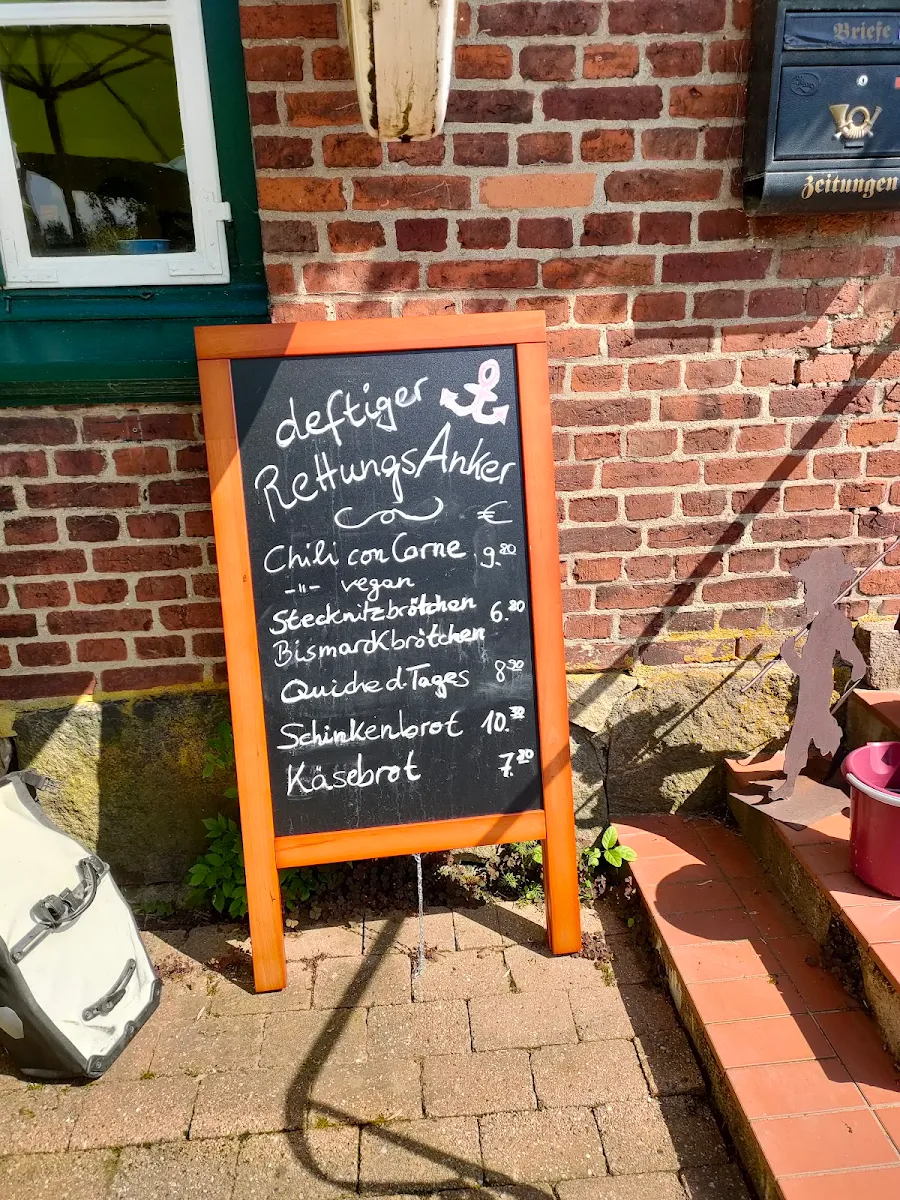 Briefe
Zeitungen
deftiger
RettungsAnker
€
Chili con Carne 9.80
-"- vegan
Stecknitzbrötchen 6.80
Bismarckbrötchen
Quiche d. Tages 8.50
Schinkenbrot 10.30
Käsebrot 7.80